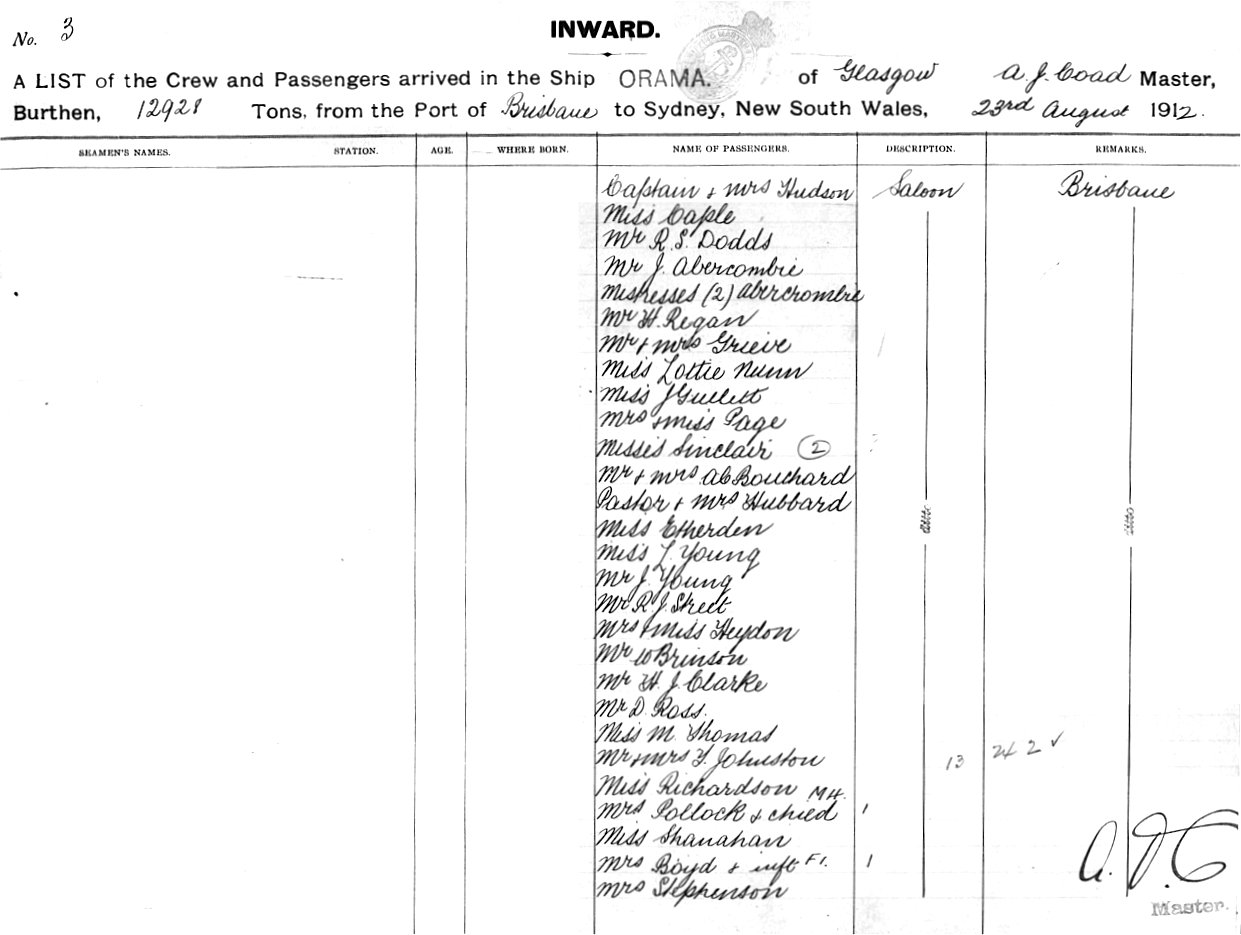 No. 3
INWARD.
A LIST of the Crew and Passengers arrived in the Ship ORAMA. of Glasgow A. J. Coad Master,
Burthen, 12928 Tons, from the Port of Brisbane to Sydney, New South Wales, 23rd August 1912.
SEAMEN'S NAMES. STATION. AGE. WHERE BORN. NAME OF PASSENGERS. DESCRIPTION. REMARKS.
Captain & Mrs Hudson Saloon Brisbane
Miss Caple
Mr R. S. Dodds
Mr J. Abercombie
Mistresses (2) Abercrombie
Mr H. Regan
Mr & Mrs Grieve
Miss Lottie Nunn
Miss J Gullett
Mrs & Miss Page
Misses Sinclair (2)
Mr & Mrs A C Bouchard
Pastor & Mrs Hubbard
ditto ditto
Miss Etherden
Miss L. Young
Mr J. Young
Mr R. J. Street
Mrs & Miss Heydon
Mr W Brinson
Mr H. J. Clarke
Mr D. Ross.
Miss M. Thomas
Mr & Mrs Y. Johnston 13 24 2 ✓
Miss Richardson
Mrs Pollock & child M H. 1
Miss Shanahan
Mrs Boyd & inft F 1. 1
Mrs Stephenson
A. J. C
Master.